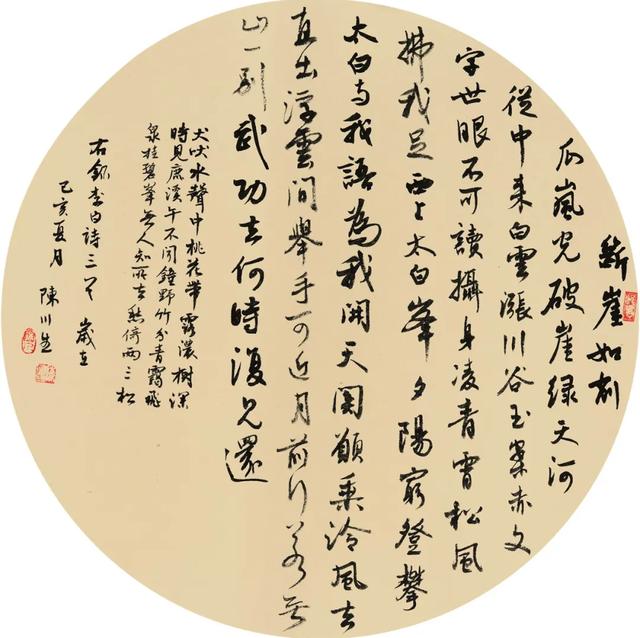 断崖如削
瓜嵐光破崖绿天河
從中来白雲漲川谷玉案赤文
字世眼不可讀攝身凌青霄松風
拂我足西上太白峯夕陽窮登攀
太白与我語為我開天関願乘泠風去
直出浮雲間舉手可近月前行若無
山一别武功去何時復見還
犬吠水聲中桃花带露濃樹深
時見鹿溪午不聞鐘野竹分青靄飛
泉挂碧峯無人知所去愁倚兩三松
右録李白詩三首 歲在
己亥夏月 陳川生